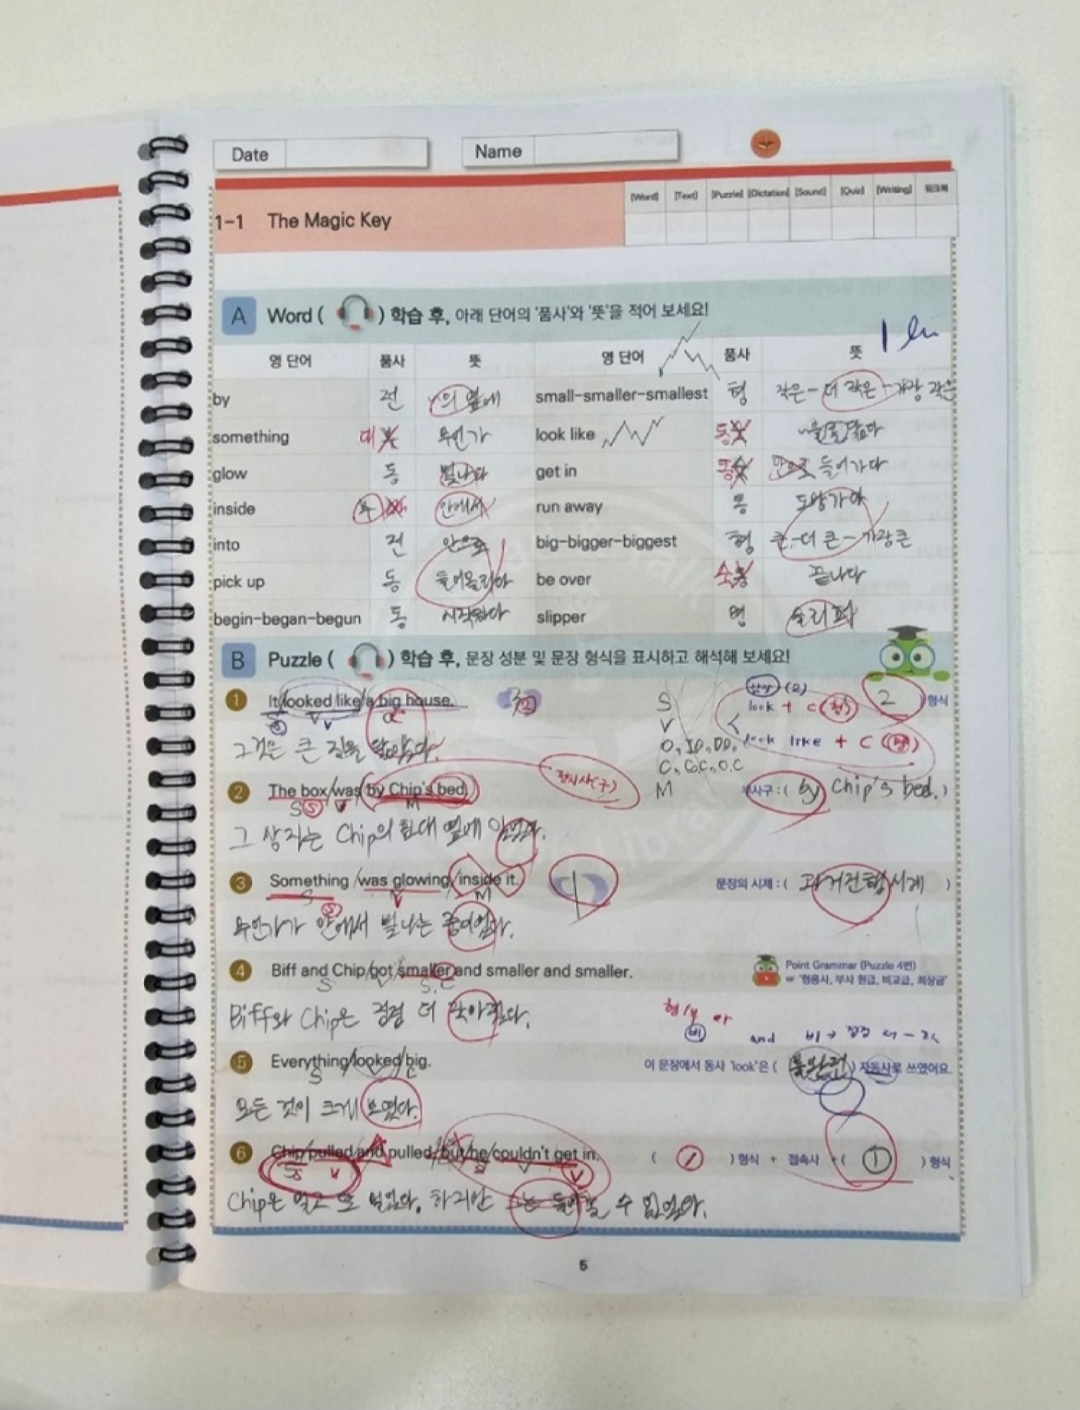 Date
Name
[Word] [Text] [Puzzle] [Dictation] [Sound] [Quiz] [Writing] 워크북
1-1 The Magic Key
A Word ( ) 학습 후, 아래 단어의 '품사'와 '뜻'을 적어 보세요!
영 단어 품사 뜻 영 단어 품사 뜻
by 전 ~의 옆에 small-smaller-smallest 형 작은 - 더 작은 - 가장 작은
something 대 무언가 look like 동
glow 동 빛나다 get in 동 들어가다
inside 부 안에서 run away 동 도망가다
into 전 안으로 big-bigger-biggest 형 큰 - 더 큰 - 가장 큰
pick up 동 들어올리다 be over 끝나다
begin-began-begun 동 시작하다 slipper 명 슬리퍼
B Puzzle ( ) 학습 후, 문장 성분 및 문장 형식을 표시하고 해석해 보세요!
1 It/looked like/a big house. 2 형식
S V
look + C (형)
look like + C (명)
그것은 큰 집을 닮았다.
S
V
O, IO, DO,
C, S.C, O.C
M
2 The box/was/by Chip's bed. 전치사(구) 부사구 : ( by Chip's bed. )
S V M
그 상자는 Chip의 침대 옆에 있었다.
3 Something /was glowing/inside it. 1 문장의 시제 : ( 과거진행시제 )
S V M
무언가가 안에서 빛나는 중이었다.
4 Biff and Chip/got/smaller and smaller and smaller.
S S.C
Point Grammar (Puzzle 4번)
☞ '형용사, 부사 원급, 비교급, 최상급'
Biff와 Chip은 점점 더 작아졌다.
5 Everything/looked/big. 이 문장에서 동사 'look'은 ( 불완전 ) 자동사로 쓰였어요.
S
모든 것이 크게 보였다.
6 Chip/pulled/and pulled/but/he/couldn't get in. ( 1 ) 형식 + 접속사 + ( 1 ) 형식
S V S V
Chip은 밀고 또 밀었다. 하지만 그는 들어갈 수 없었다.
5